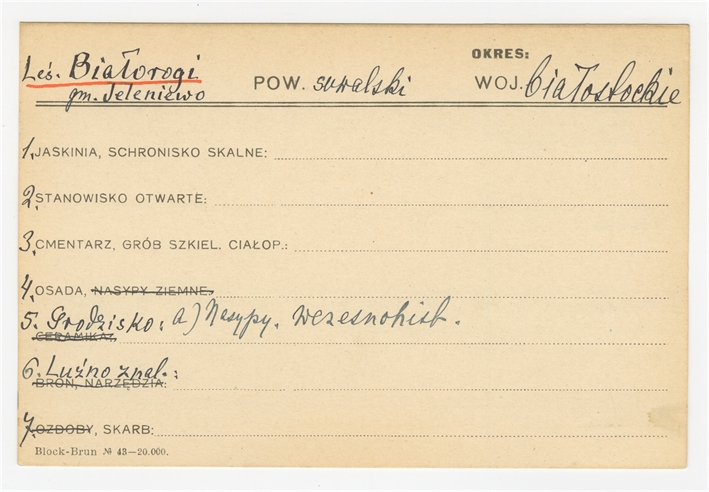 OKRES:
Leś. Białorogi POW. suwalski WOJ. białostockie
gm. Jeleniewo
1. JASKINIA, SCHRONISKO SKALNE:
2. STANOWISKO OTWARTE:
3. CMENTARZ, GRÓB SZKIEL. CIAŁOP.:
4. OSADA, NASYPY ZIEMNE,
5. Grodzisko: a) Nasypy. wczesnohist.
CERAMIKA,
6. Luźno znal.:
BROŃ, NARZĘDZIA:
7. OZDOBY, SKARB:
Block-Brun № 43—20.000.